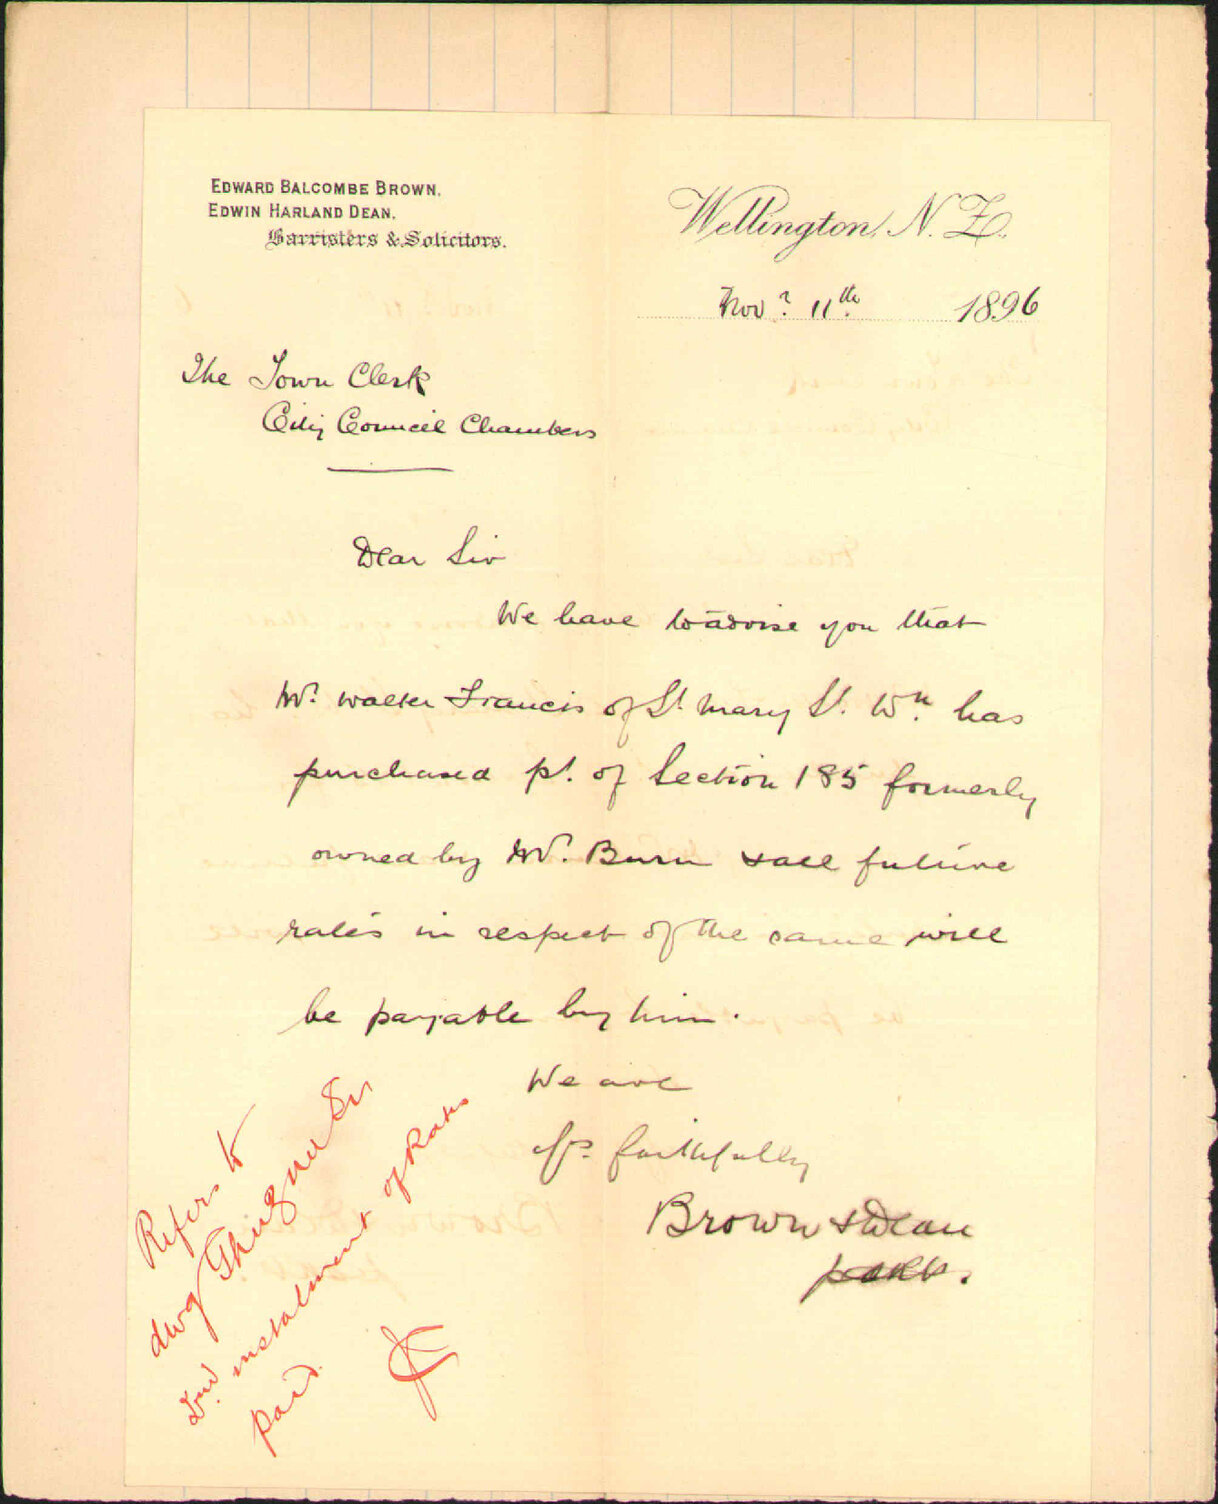 EDWARD BALCOMBE BROWN.
EDWIN HARLAND DEAN.
Barristers & Solicitors.
Wellington, N.Z.
Novr. 11th. 1896
The Town Clerk
City Council Chambers
Dear Sir
We have to advise you that
Mr. Walter Francis of St. Mary St. Wn. has
purchased pt. of Section 185 formerly
owned by Mr. Burn & all future
rates in respect of the same will
be payable by him.
We are
Yrs. faithfully
Brown & Dean
Refers to
dwg
2nd instalment of Rates
paid.